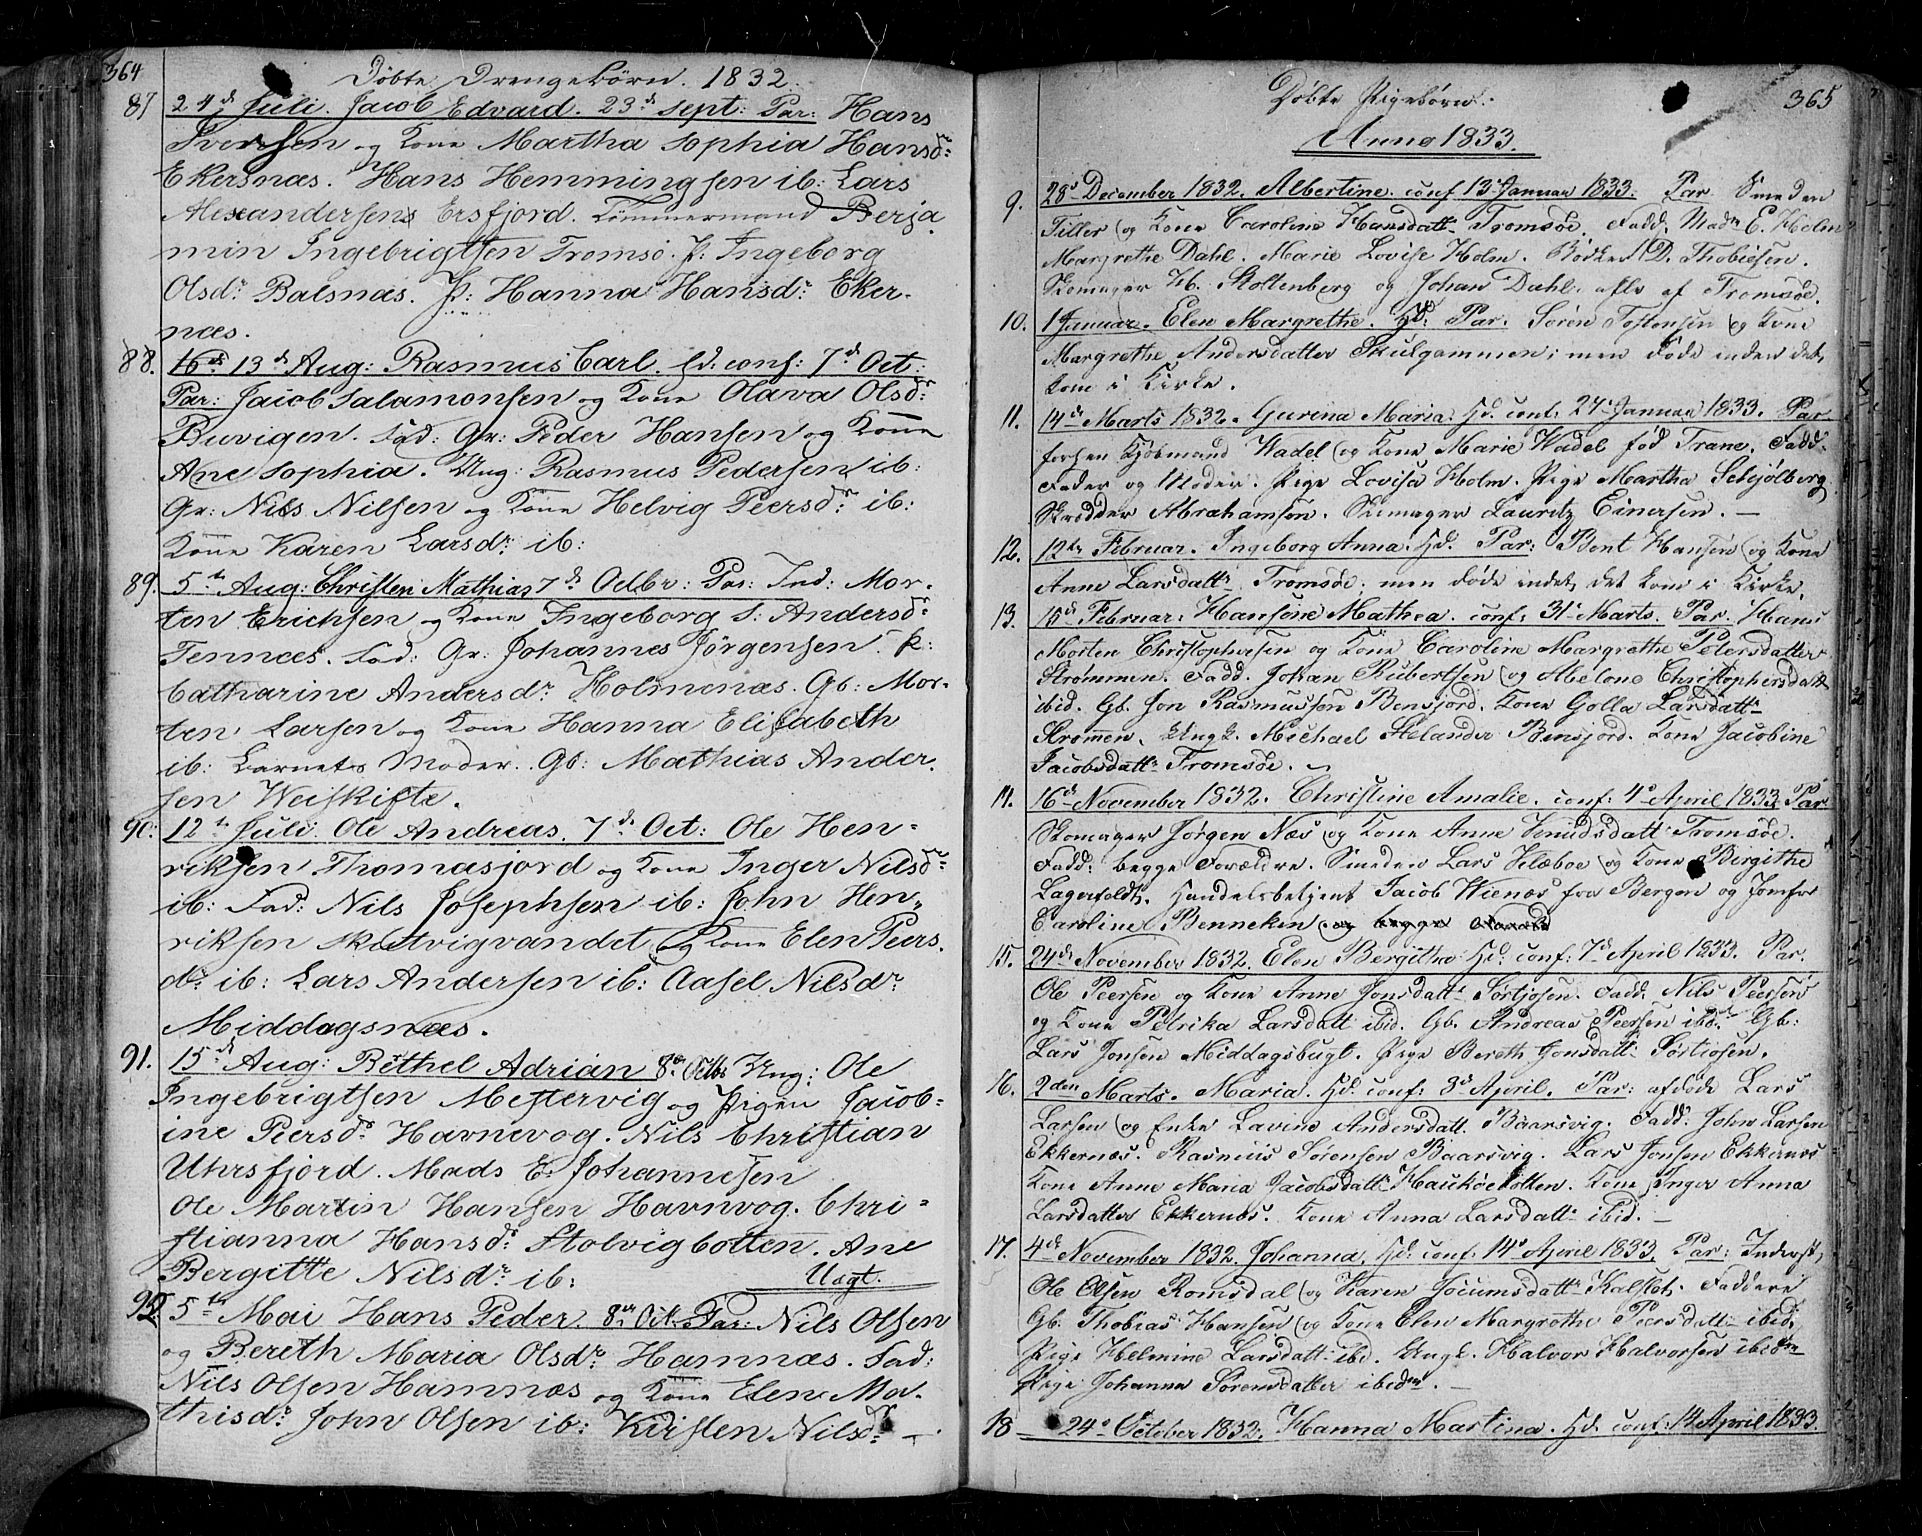 364
Døbte Drengebørn. 1832.
87 24d Juli. Jacob Edvard. 23d Sept: Par: Hans
Iversen og Kone Martha Sophia Hansdr:
Ekersnæs. Hans Hemmingsen ib: Lars
Alexandersens Ersfjord. Tømmermand Benja
min Ingebrigtsen Tromsö. P. Ingeborg
Olsdr Balsnæs. P: Hanna Hansdr Eker-
næs.
88. 13d Aug: Rasmus Carl. hd. conf: 7d Oct:
Par: Jacob Salamonsen og Kone Olava Olsdr:
Buvigen. Fad: Gr: Peder Hansen og Kone
Ane Sophia. Ung: Rasmus Pedersen ib:
Gr: Nils Nilsen og Kone Helvig Peersdr ib:
Kone Karen Larsdr ib:
89. 5te Aug: Christen Mathias 7d Octbr: Par: Ind: Mor-
ten Erichsen og Kone Ingeborg S: Andersdr
Tennæs. Fad: Gr: Johannes Jörgensen. K:
Catharine Andersdr Holmenæs. Gb: Mor-
ten Larsen og Kone Hanna Elisabeth
ib: Barnets Moder. Gb: Mathias Ander.
sen Weiskifte.
90. 12te Juli. Ole Andreas. 7d Oct: Ole Hen-
riksen Thomasjord og Kone Inger Nilsdr
ib: Fad: Nils Josephsen ib: John Hen-
riksen Skietvigvandet og Kone Elen Peers.
dr ib: Lars Andersen ib: Aasel Nilsdr
Middagsnæs.
91. 15d Aug: Bethel Adrian 8de Octb: Ung: Ole
Ingebrigtsen Mestervig og Pigen Jacob-
ine Peersdr Havnevog. Nils Christian
Uhrsfjord. Mads E. Johannesen
Ole Martin Hansen Havnvog. Chri-
stianna Hansdr: Stolvigbotten. Ane
Bergitte Nilsdr ib:
Uægt.
92. 5te Mai Hans Peder. 8de Oct: Par: Nils Olsen
og Bereth Maria Olsdr Hamnæs. Fad:
Nils Olsen Hamnæs og Kone Elen Ma-
thisdr John Olsen ib: Kirsten Nilsdr –
365
Døbte Pigebørn.
Anno 1833.
9. 28d December 1832. Albertine. conf 13d Januar 1833. Par Smeden
Tiller og Kone Caroline Hansdattr Tromsöe. Fadd. Madm E. Holm
Margrethe Dahl. Marie Lovise Holm. Bödker D. Thobiesen.
Skomager H. Stoltenberg og Johan Dahl. alle af Tromsöe.
10. 1 Januar. Elen Margrethe. Hd: Par. Sören Tostensen og Kone
Margrethe Andersdatter Skulgammen; men døde inden det
kom i Kirke.
11. 14d Marts 1832. Gurina Maria. Hd. conf: 27d Januar 1833. Par
forhen Kjöbmand Wadel og Kone Marie Wadel föd Trane. Fadd.
Fader og Moder. Pige Lovisa Holm. Pige Martha Schjölberg
Skrædder Abrahamson. Skomager Lauritz Einersen. –
12. 12te Februar. Ingeborg Anna. Hd. Par: Bent Hansen og Kone
Anne Larsdattr Tromsöe; men døde indet det kom i Kirke.
13. 15d Februar. Hansine Mathea. conf: 31d Marts. Par. Hans
Morten Christophersen og Kone Caroline Margrethe Petersdatter
Strommen. Fadd. Johan Rubertsen og Abelone Christophersdatt
ibid. Gb. Jon Rasmussen Bensjord. Kone Golla Larsdattr
Strømen. Ungk. Michael Helander Bensjord. Kone Jacobine
Jacobsdattr Tromsöe.
14. 16d November 1832. Christine Amalie. conf: 4d April 1833 Par
Skomager Jörgen Næs og Kone Anne Knudsdatt Tromsøe.
Fadd: begge Forældre. Smeden Lars Klæboe og Kone Bergithe
Lagerfeldt. Handelsbetjent Jacob Wienæs fra Bergen og Jomfru
Caroline Benneken
15. 24d November 1832. Elen Bergitha Hd: conf: 7d April 1833. Par.
Ole Peersen og Kone Anne Jonsdattr Sørtjosen. Fadd. Nils Peersen
og Kone Petrika Larsdatt ibid. Gb. Andreas Peersen ibid. Gb:
Lars Jonsen Middagsbugt. Pige Bereth Jonsdattr Sørtiosen.
16. 2den Marts. Maria. Hd: conf: 8d April. Par: afdøde Lars
Larsen og Enke Lavine Andersdatt. Baarsvig. Fadd. John Larsen
Ekkernæs. Rasmus Sörensen Baarsvig. Lars Jonsen Ekkernæs
Kone Anne Maria Jacobsdattr Hauköebotten. Kone Inger Anna
Larsdatter Ekkernæs. Kone Anna Larsdattr ibid. –
17. 4d November 1832. Johanna. Hd: conf: 14d April 1833. Par: Inderst
Ole Olsen Romsdal og Karen Jocumsdattr Kalslet. Faddere
Gb. Thobias Hansen og Kone Elen Margrethe Peersdattr ibid.
Pige Helmine Larsdattr ibid. Ungk. Halvor Halvorsen ibidm
Pige Johanna Sörensdatter ibidm. –
18 24d October 1832. Hanna Martina. Hd: conf: 14 April 1833.